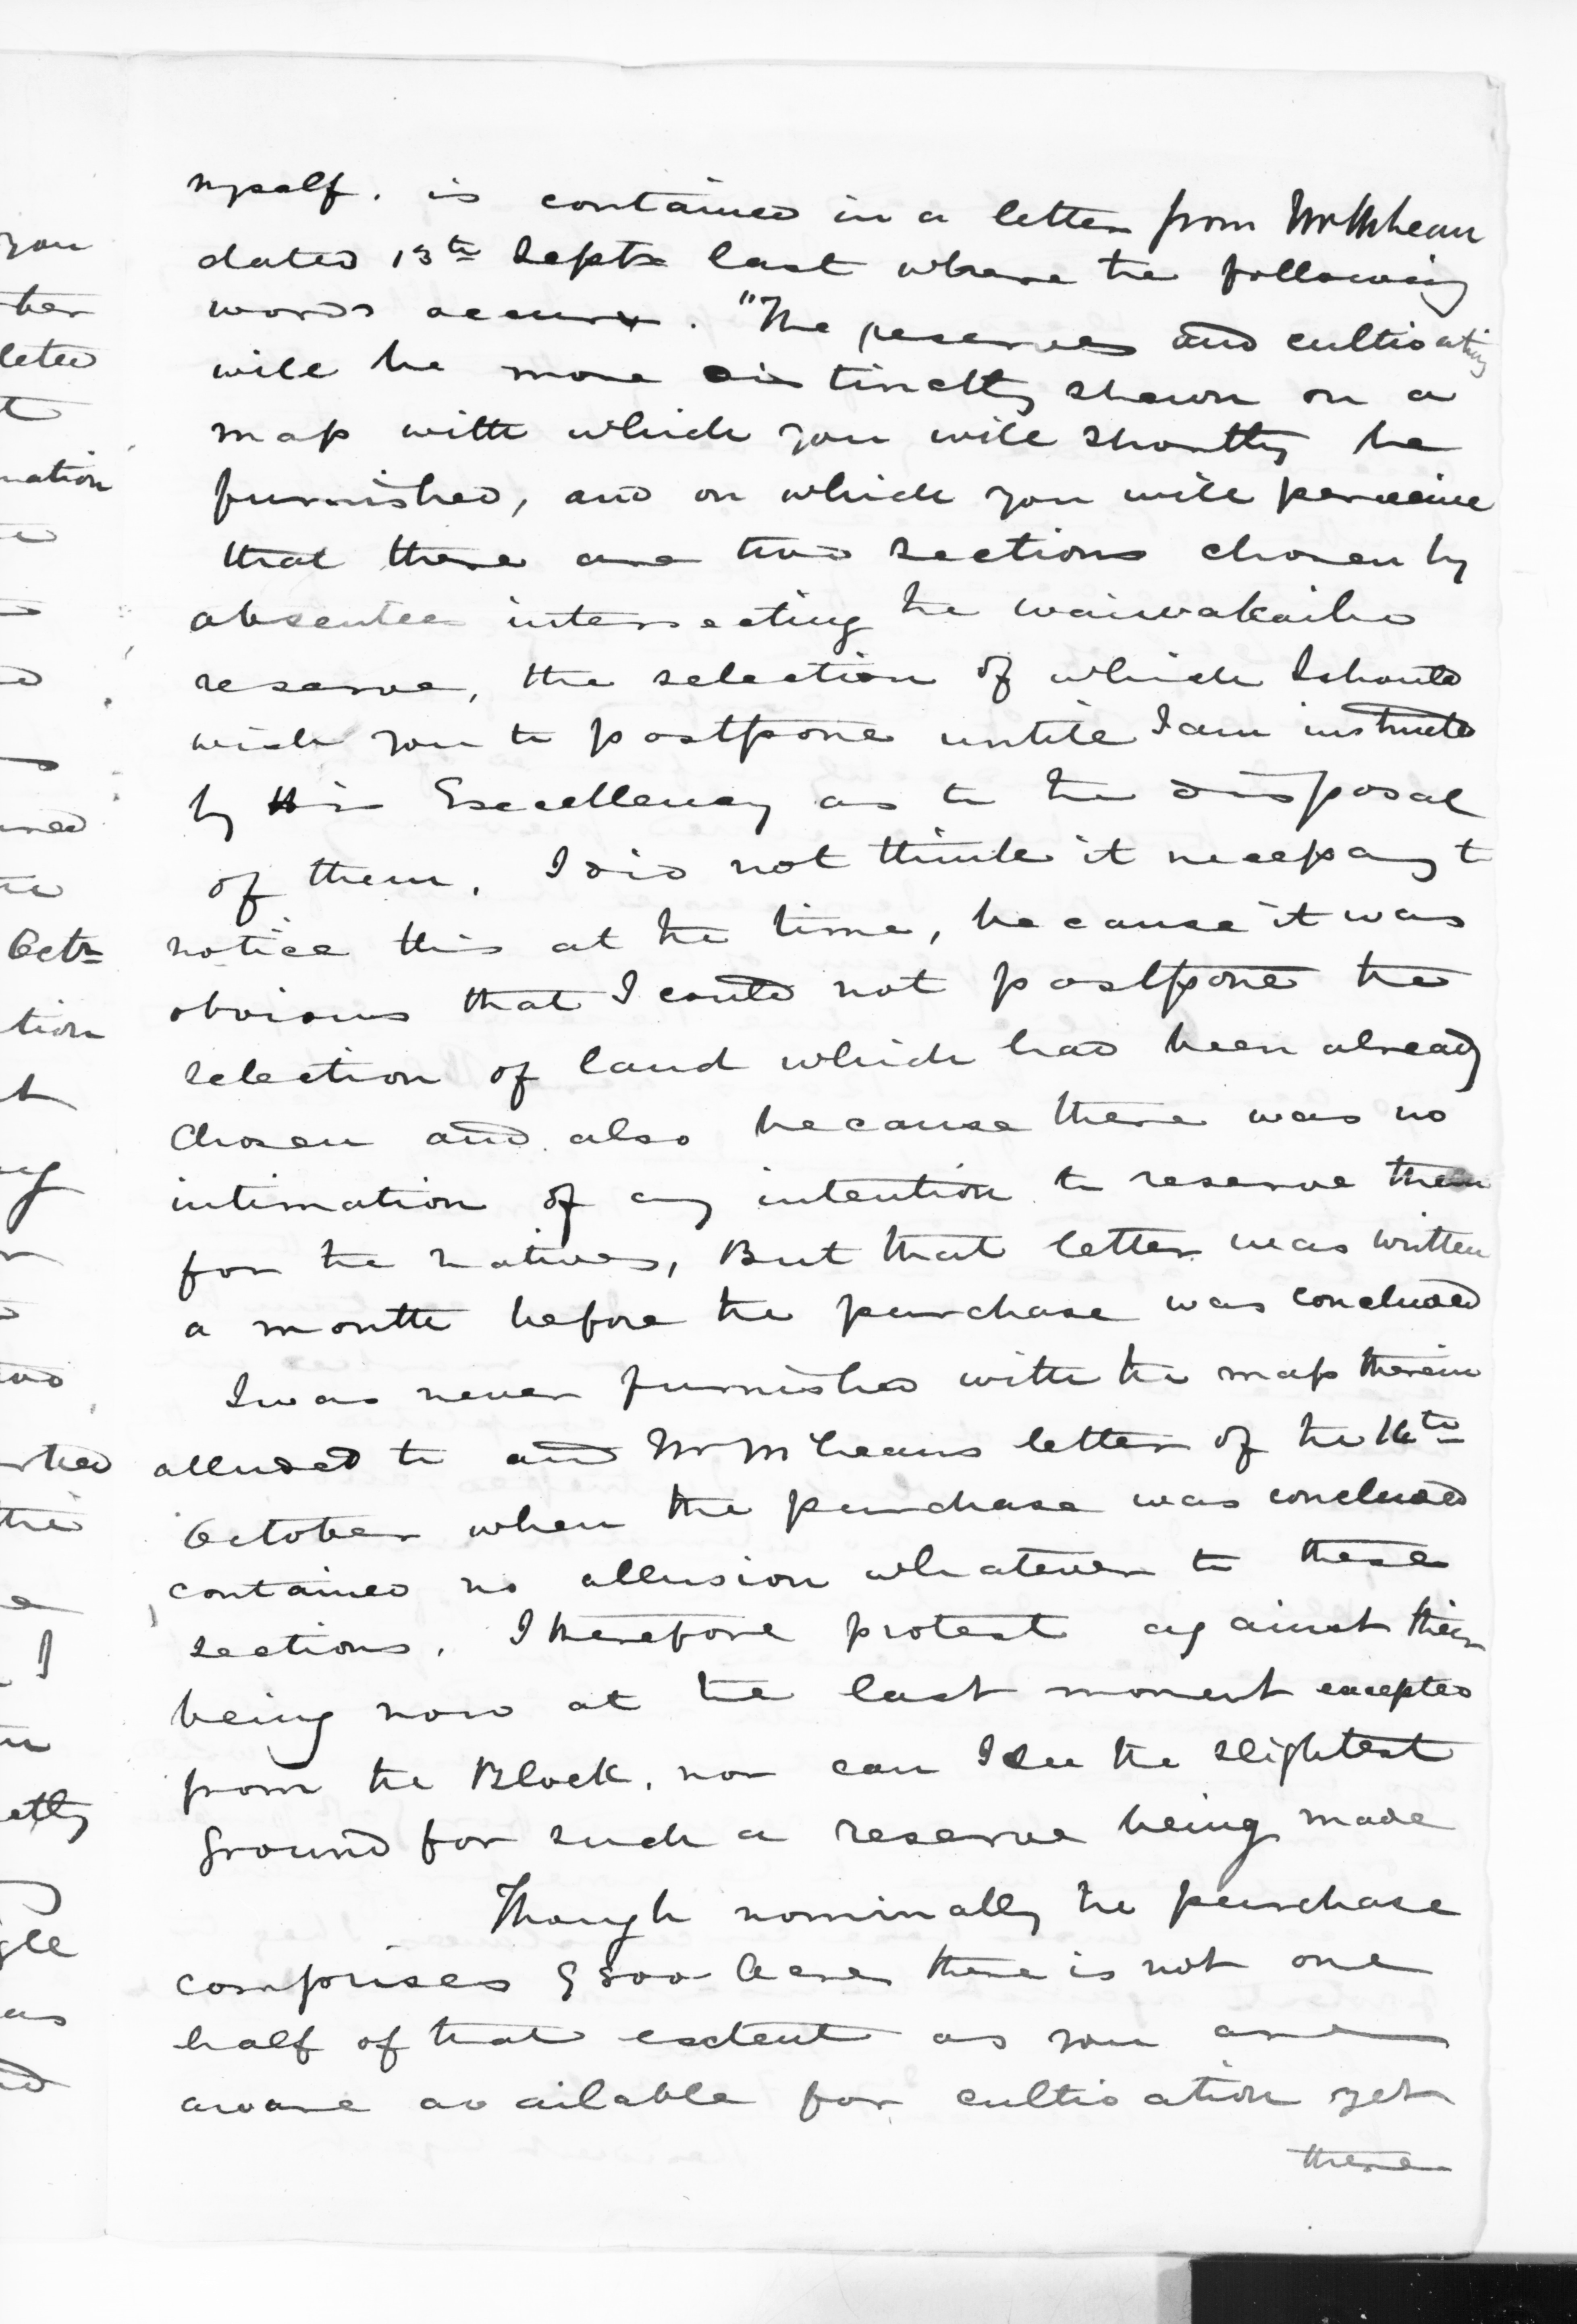 myself. is contained in a letter from Mr McLean
dated 13th Septr last where the following
words occur. "The reserves and cultivating
will be more distinctly shewn on a
map with which you will shortly be
furnished, and on which you will perceive
that there are two sections chosen by
absentees intersecting the waiwakaiho
reserve, the selection of which I should
wish you to postpone untill I am instructed
by His Excellency as to the disposal
of them. I did not think it necessary to
notice this at the time, because it was
obvious that I could not postpone the
selection of land which had been already
chosen and also because there was no
intimation of any intention to reserve them
for the natives, But that letter was written
a month before the purchase was concluded
I was never furnished with the map therein
alluded to and Mr McLeans letter of the 16th
October when the purchase was concluded
contained no allusion whatever to these
sections. I therefore protest against their
being now at the last moment excepted
from the Block. nor can I see the slightest
ground for such a reserve being made
Though nominally the purchase
comprises 9800 Acres there is not one
half of that extent as you are
aware available for cultivation yet
there
you
ther
t
nation
Octr
tion
gle
as